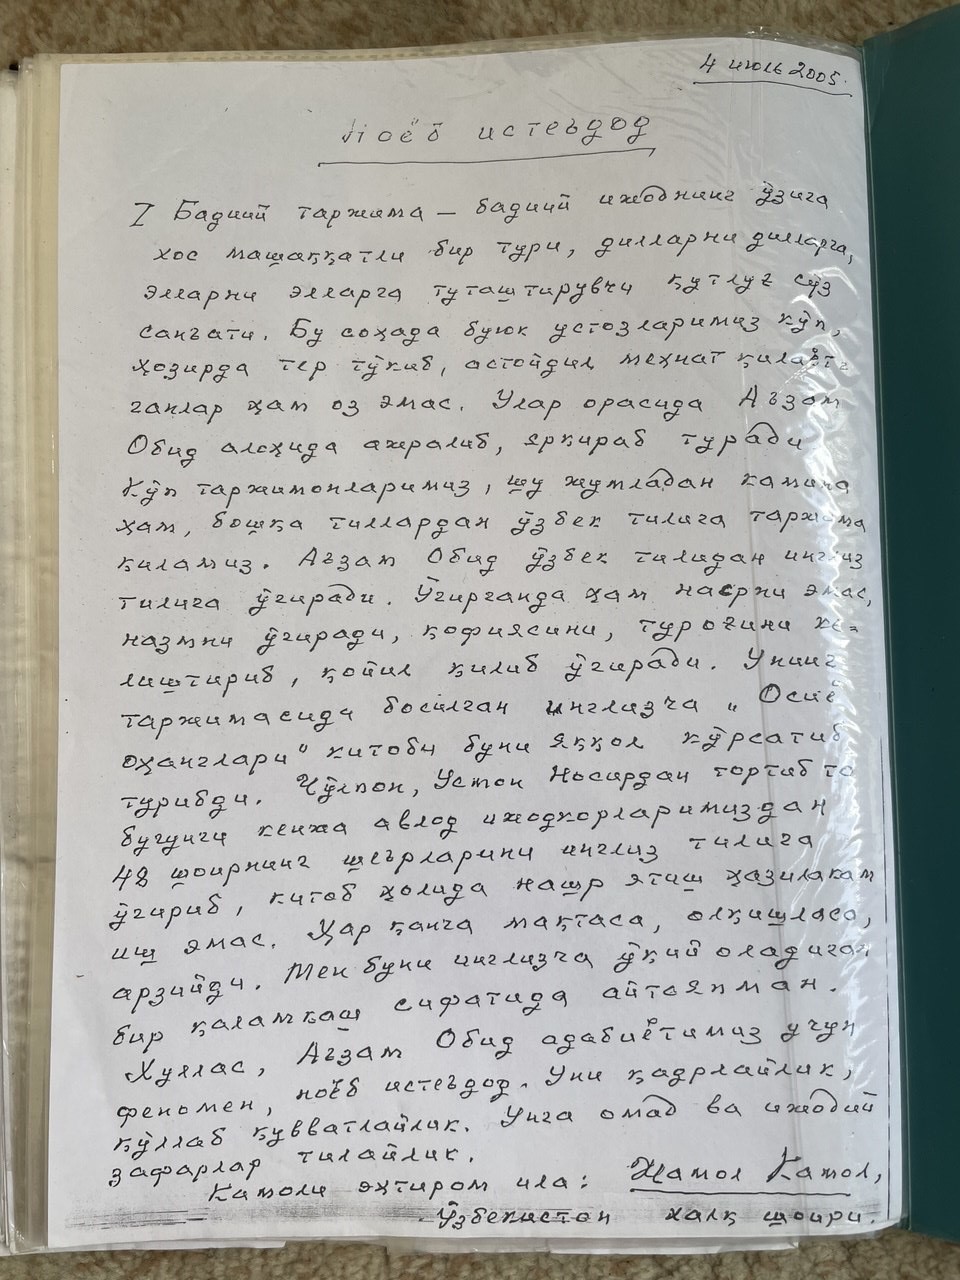 4 июль 2005.
Ноёб истеъдод
I Бадиий таржима — бадиий ижоднинг ўзига
хос машаққатли бир тури, дилларни дилларга,
элларни элларга туташтирувчи қутлуғ сўз
санъати. Бу соҳада буюк устозларимиз кўп,
ҳозирда тер тўкиб, астойдил меҳнат қилаёт-
ганлар ҳам оз эмас. Улар орасида Аъзам
Обид алоҳида ажралиб, ярқираб туради
Кўп таржимонларимиз, шу жумладан камина
ҳам, бошқа тиллардан ўзбек тилига таржима
қиламиз. Аъзам Обид ўзбек тилидан инглиз
тилига ўгиради. Ўгирганда ҳам насрни эмас,
назмни ўгиради, қофиясини, туроғини ке=
лиштириб, қойил қилиб ўгиради. Унинг
таржимасида босилган инглизча „Осиё
оҳанглари“ китоби буни яққол кўрсатиб
турибди. Чўлпон, Усмон Носирдан тортиб то
бугунги кенжа авлод ижодкорларимиздан
42 шоирнинг шеърларини инглиз тилига
ўгириб, китоб ҳолида нашр этиш ҳазилакам
иш эмас. Ҳар қанча мақтаса, олқишласа,
арзийди. Мен буни инглизча ўқий оладиган
бир қаламкаш сифатида айтаяпман.
Хуллас, Аъзам Обид адабиётимиз учун
феномен, ноёб истеъдод. Уни қадрлайлик,
қўллаб қувватлайлик. Унга омад ва ижодий
зафарлар тилайлик.
Камоли эҳтиром ила: Жамол Камол,
Ўзбекистон халқ шоири.